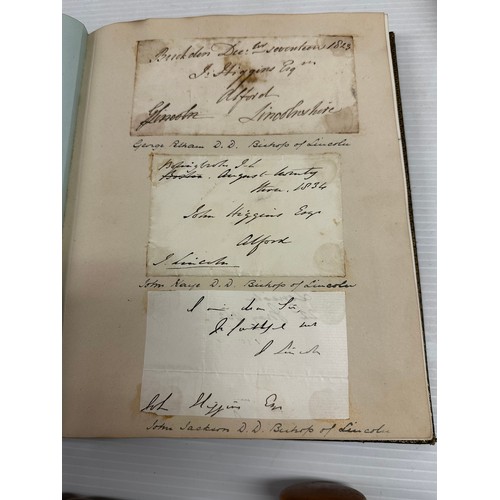 Buckden Dec.ber seventeen 1823
J. Higgins Esq.re
Alford
G Lincoln Lincolnshire
George Pelham D.D. Bishop of Lincoln
August twenty
three. 1834
John Higgins Esq
Alford
J Lincoln
John Kaye D.D. Bishop of Lincoln
I am dear Sir,
J Lincoln
John Higgins Esq
John Jackson D.D. Bishop of Lincoln